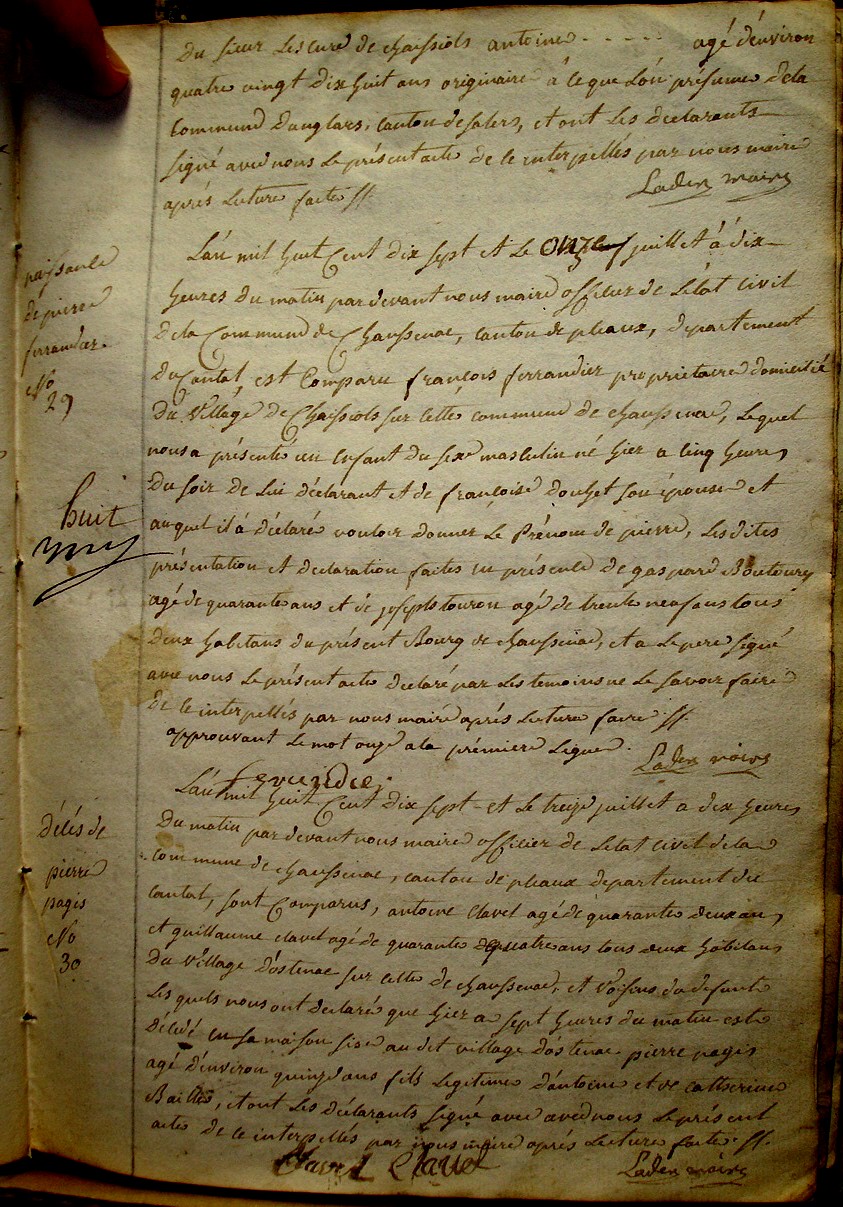 Du sieur Lescure de chaissiols antoine - - - - - agé d'environ
quatre vingt dix huit ans originaire à ce que L'on présume dela
Commune Danglars, Canton de salers, et ont Les declarants
signé avec nous Le présent acte de ce interpellés par nous maire
après Lecture faite //.
Laden maire
naissance
de pierre
ferrandier.
No
29
L'an mil huit Cent dix sept et Le onze juillet à dix
heures Du matin par devant nous maire officier de L'état Civil
Dela Commune de Chaussenac, Canton de pleaux, departement
Du Cantal, est Comparu françois ferrandier proprietaire domicilié
Du Village De Chaissiols sur cette commune de chaussenac, Lequel
nous a présenté un Enfant du sexe masculin né hier a Cinq heures
Du soir de Lui déclarant et de françoise douhet son épouse et
auquel il à déclaré vouloir donner Le Prénom de pierre, Les dites
présentation et declaration faites en présence de gaspard
agé de quarante ans et de joseph touron agé de trente neuf ans tous
deux habitans du présent Bourg de chaussenac, et a Le pere signé
avec nous Le présent acte declaré par Les temoins ne Le savoir faire
De ce interpellés par nous maire après Lecture faire //.
approuvant Le mot onze a la premiere Ligne.
Laden maire
huit
Décés de
pierre
pagis
No
30
L'an mil huit Cent dix sept et Le treize juillet a dix heures
Du matin par devant nous maire officier de L'etat Civil dela
Commune de chaussenac, Canton de pleaux departement du
Cantal, sont Comparus, antoine Clavel agé de quarante deux ans,
et guillaume clavel agé de quarante quatre ans tous deux habitans
Du Village d'ostenac sur cette de chaussenac, et Voisins du defunt
Les quels nous ont declaré que hier a sept heures du matin est
Décédé en sa maison sise au dit village d'ostenac pierre pagis
agé d'environ quinze ans fils Legitime d'antoine et de catherine
et ont Les déclarants signé avec avec nous Le présent
acte de ce interpellés par nous maire après Lecture faite. //.
Clavel Clavel
Laden maire